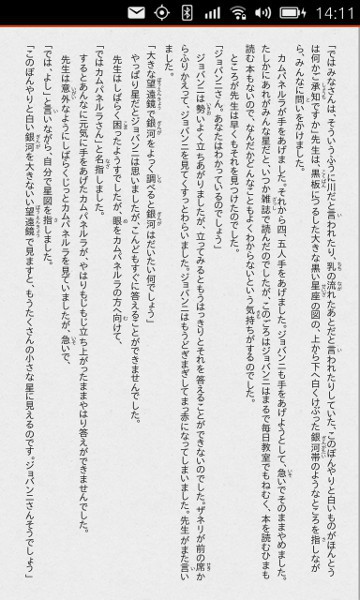 14:11
「ではみなさんは、そういうふうに川だと言われたり、乳の流れたあとだと言われたりしていた、このぼんやりと白いものがほんとう
は何かご承知ですか」先生は、黒板につるした大きな黒い星座の図の、上から下へ白くけぶった銀河帯のようなところを指しなが
ら、みんなに問いをかけました。
カムパネルラが手をあげました。それから四、五人手をあげました。ジョバンニも手をあげようとして、急いでそのままやめました。
たしかにあれがみんな星だと、いつか雑誌で読んだのでしたが、このごろはジョバンニはまるで毎日教室でもねむく、本を読むひまも
読む本もないので、なんだかどんなこともよくわからないという気持ちがするのでした。
ところが先生は早くもそれを見つけたのでした。
「ジョバンニさん。あなたはわかっているのでしょう」
ジョバンニは勢いよく立ちあがりましたが、立ってみるともうはっきりとそれを答えることができないのでした。ザネリが前の席か
らふりかえって、ジョバンニを見てくすっとわらいました。ジョバンニはもうどぎまぎしてまっ赤になってしまいました。先生がまた言い
ました。
「大きな望遠鏡で銀河をよっく調べると銀河はだいたい何でしょう」
やっぱり星だとジョバンニは思いましたが、こんどもすぐに答えることができませんでした。
先生はしばらく困ったようすでしたが、眼をカムパネルラの方へ向けて、
「ではカムパネルラさん」と名指しました。
するとあんなに元気に手をあげたカムパネルラが、やはりもじもじ立ち上がったままやはり答えができませんでした。
先生は意外なようにしばらくじっとカムパネルラを見ていましたが、急いで、
「では、よし」と言いながら、自分で星図を指しました。
「このぼんやりと白い銀河を大きないい望遠鏡で見ますと、もうたくさんの小さな星に見えるのです。ジョバンニさんそうでしょう」